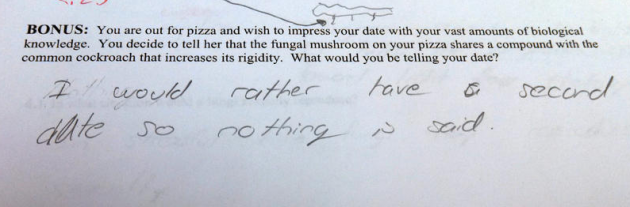 BONUS: You are out for pizza and wish to impress your date with your vast amounts of biological
knowledge. You decide to tell her that the fungal mushroom on your pizza shares a compound with the
common cockroach that increases its rigidity. What would you be telling your date?
I would rather have a second
date so nothing is said.